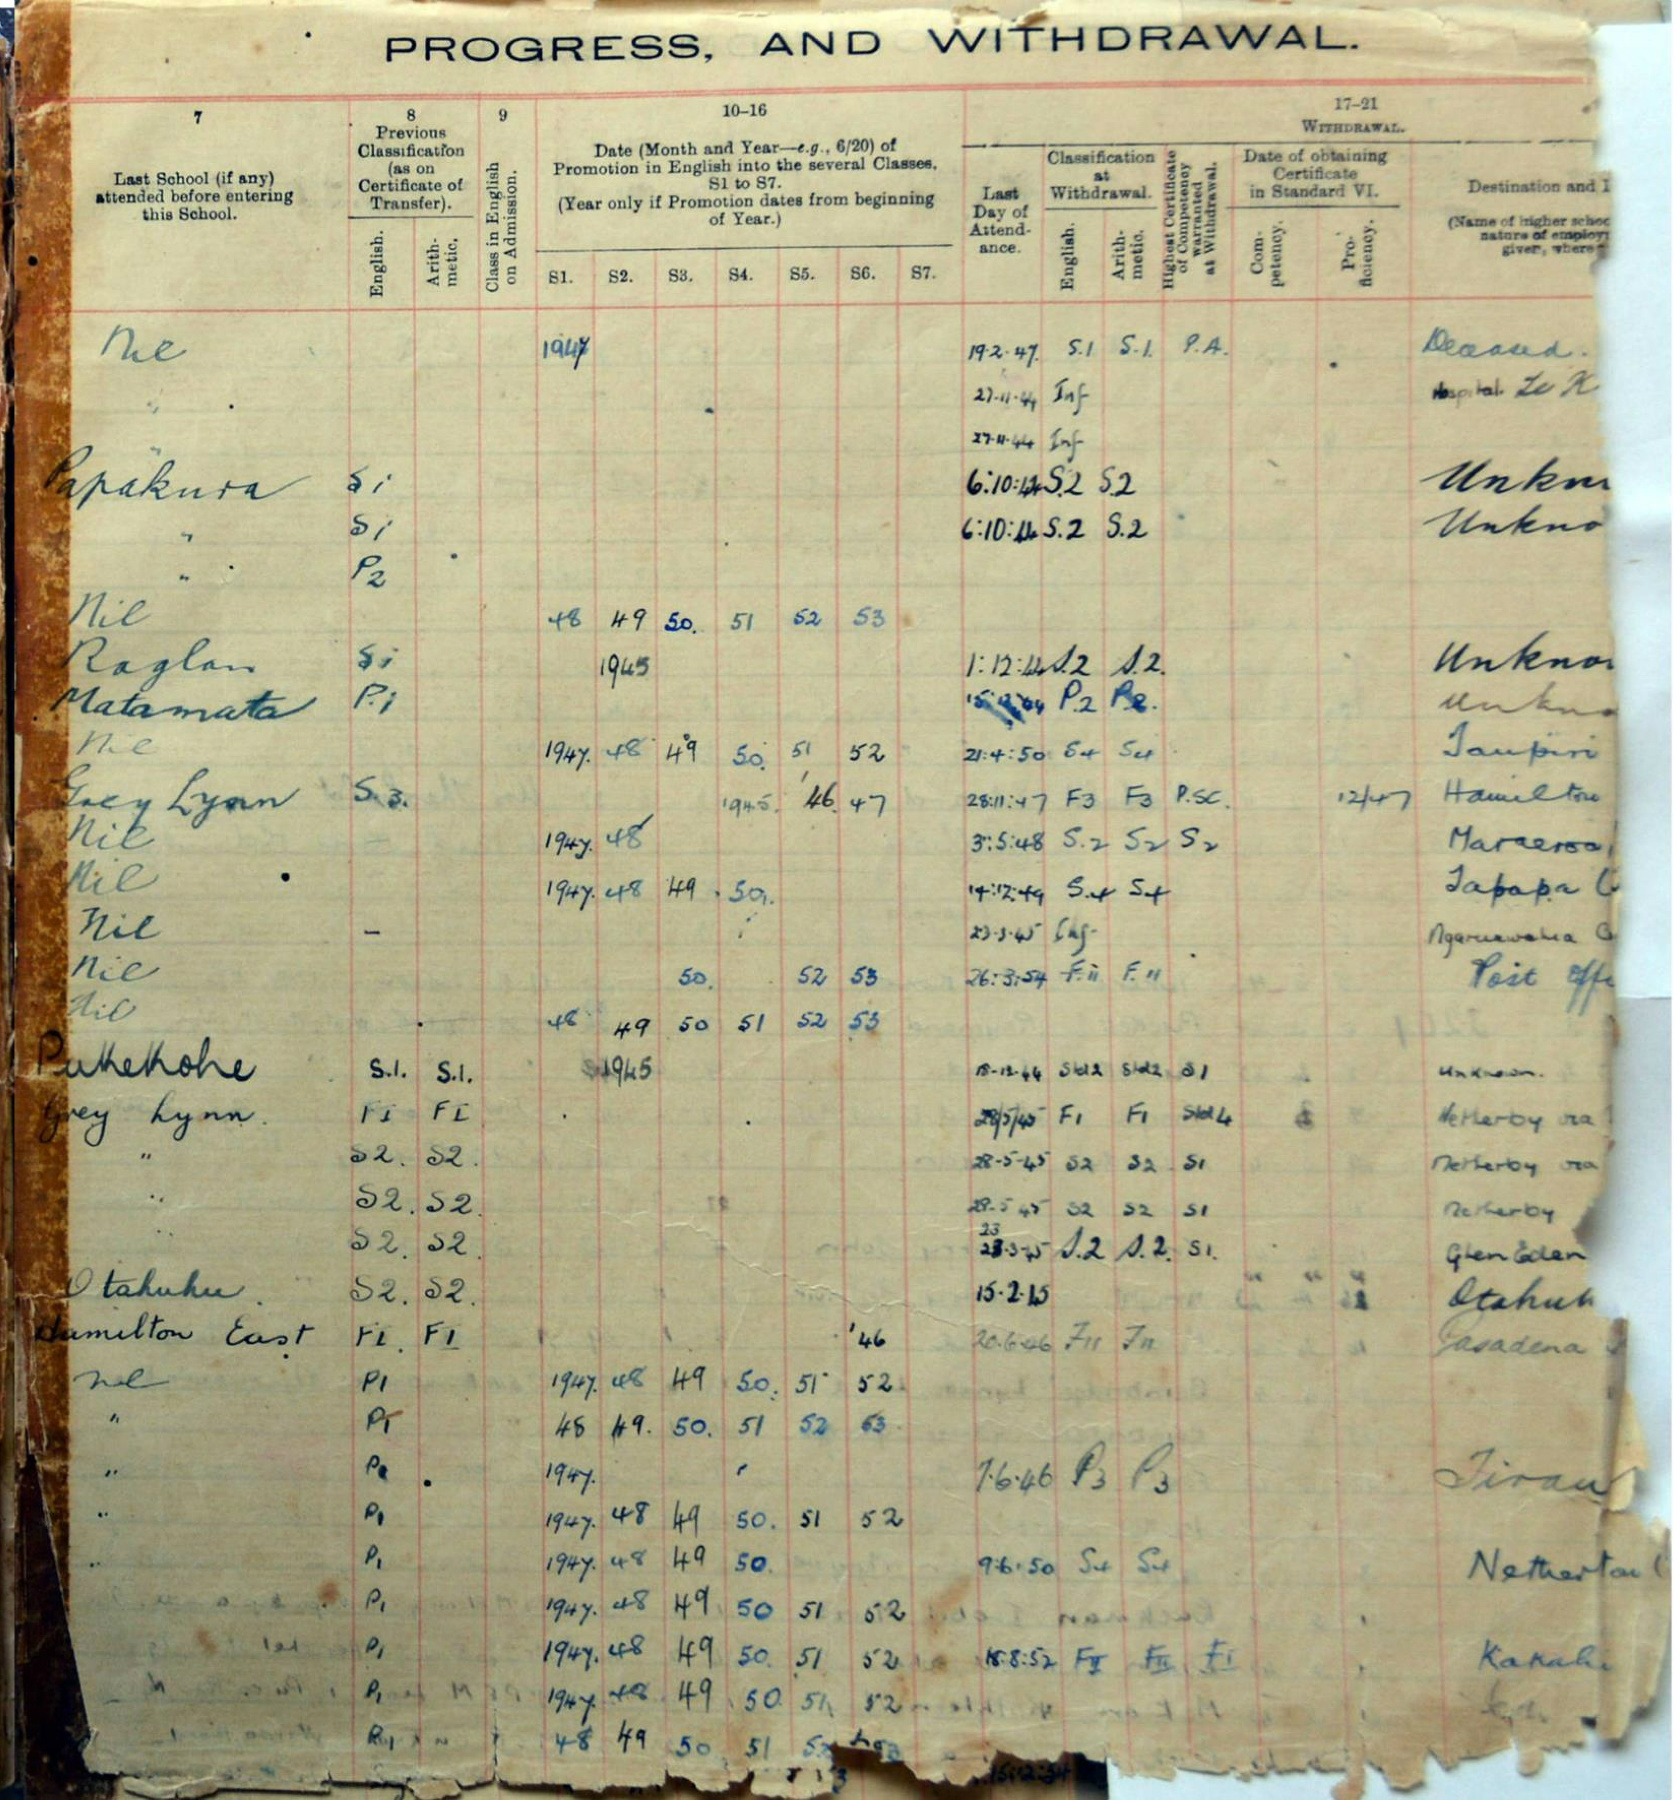 PROGRESS, AND WITHDRAWAL.
7 8 9 10–16 17–21
Last School (if any) attended before entering this School.
Previous Classification (as on Certificate of Transfer).
English. Arith-metic.
Class in English on Admission.
Date (Month and Year—e.g., 6/20) of Promotion in English into the several Classes, S1 to S7. (Year only if Promotion dates from beginning of Year.)
S1. S2. S3. S4. S5. S6. S7.
WITHDRAWAL.
Last Day of Attend-ance.
Classification at Withdrawal.
English. Arith-metic.
Highest Certificate of Competency warranted at Withdrawal.
Date of obtaining Certificate in Standard VI.
Com-petency. Pro-ficiency.
Destination and
(Name of higher schoo
nature of employ
given, where
Nil 1947 19.2.47. S.1 S.1. P.A. Deceased.
" 27.11.44 Inf Hospital.
27.11.44 Inf
Papakura S1 6:10:44 S.2 S.2 Unkn
" S1 6:10:44 S.2 S.2 Unkno
" P2
Nil 48 49 50. 51 52 53
Raglan S1 1945 1:12:44 S.2 S.2. Unkno
Matamata P.1 P.2 P2. Unkno
Nil 1947. 48 49 50. 51 52 21:4:50 S4 S4 Taupiri
Grey Lynn S.3. 1945. '46. 47 28:11:47 F3 F3 P.SC. 12/47 Hamilton
Nil 1947. 48 3:5:48 S.2 S2 S2 Maraeroa
Nil 1947. 48 49 50. 14:12:49 S.4 S4 Tapapa
Nil – 23.3.45 Inf. Ngaruawahia
Nil 50. 52 53 26:3:54 F.II F.II Post Offi
Nil 48 49 50 51 52 53
Pukekohe S.1. S.1. 1945 Std2 Std2 S1 Unknown.
Grey Lynn. F1 F1 28/5/45 F1 F1 Std4 Netherby via
" S2. S2. 28-5-45 S2 S2 S1 Netherby via
" S2. S2. 28-5-45 S2 S2 S1 Netherby
S2. S2. 23 S.2 S.2. S1. Glen Eden
Otahuhu. S2. S2. 15.2.45 " " " Otahuh
Hamilton East F1. F1 '46 20.6.46 FII FII Pasadena
Nil P1 1947. 48 49 50. 51 52
" P1 48 49. 50. 51 52 53
" P2 1947. 7.6.46 P3 P3 Tirau
" P1 1947. 48 49 50. 51 52
" P1 1947. 48 49 50. 9:6:50 S4 S4 Netherton
P1 1947. 48 49 50 51 52
P1 1947. 48 49 50. 51 52 18:8:52 FII FII FI Kakahi
P1 1947. 48 49 50. 51 52
P1 48 49 50 51